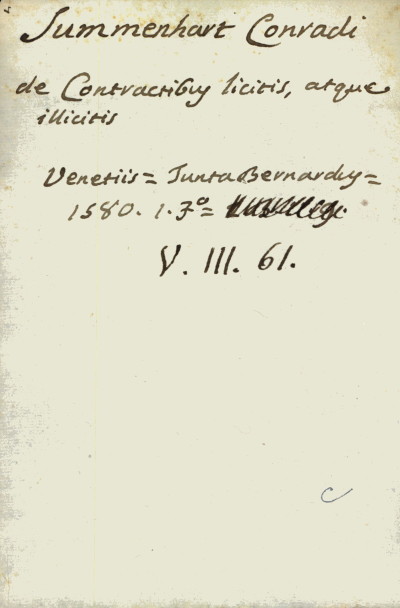 Summenhart Conradi
de Contractibus licitis, atque
illicitis
Venetiis = Junta Bernardus =
1580. 1. 3º =
V. III. 61.
C